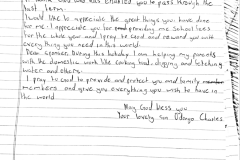 and has enabled you to pass through the
last term.
I would like to appreciate the great things you have done
for me. I appreciate you for providing me school fees
for the whole year and I pray to God and reward you with
everything you need in this world.
Dear sponsor, During this holiday I am helping my parents
with the domestic work like cooking food, digging and fetching
water and others.
I pray to God to provide and protect you and family
members and give you everything you wish to have in
the world.
May God bless you
Your lovely son Odongo Charles